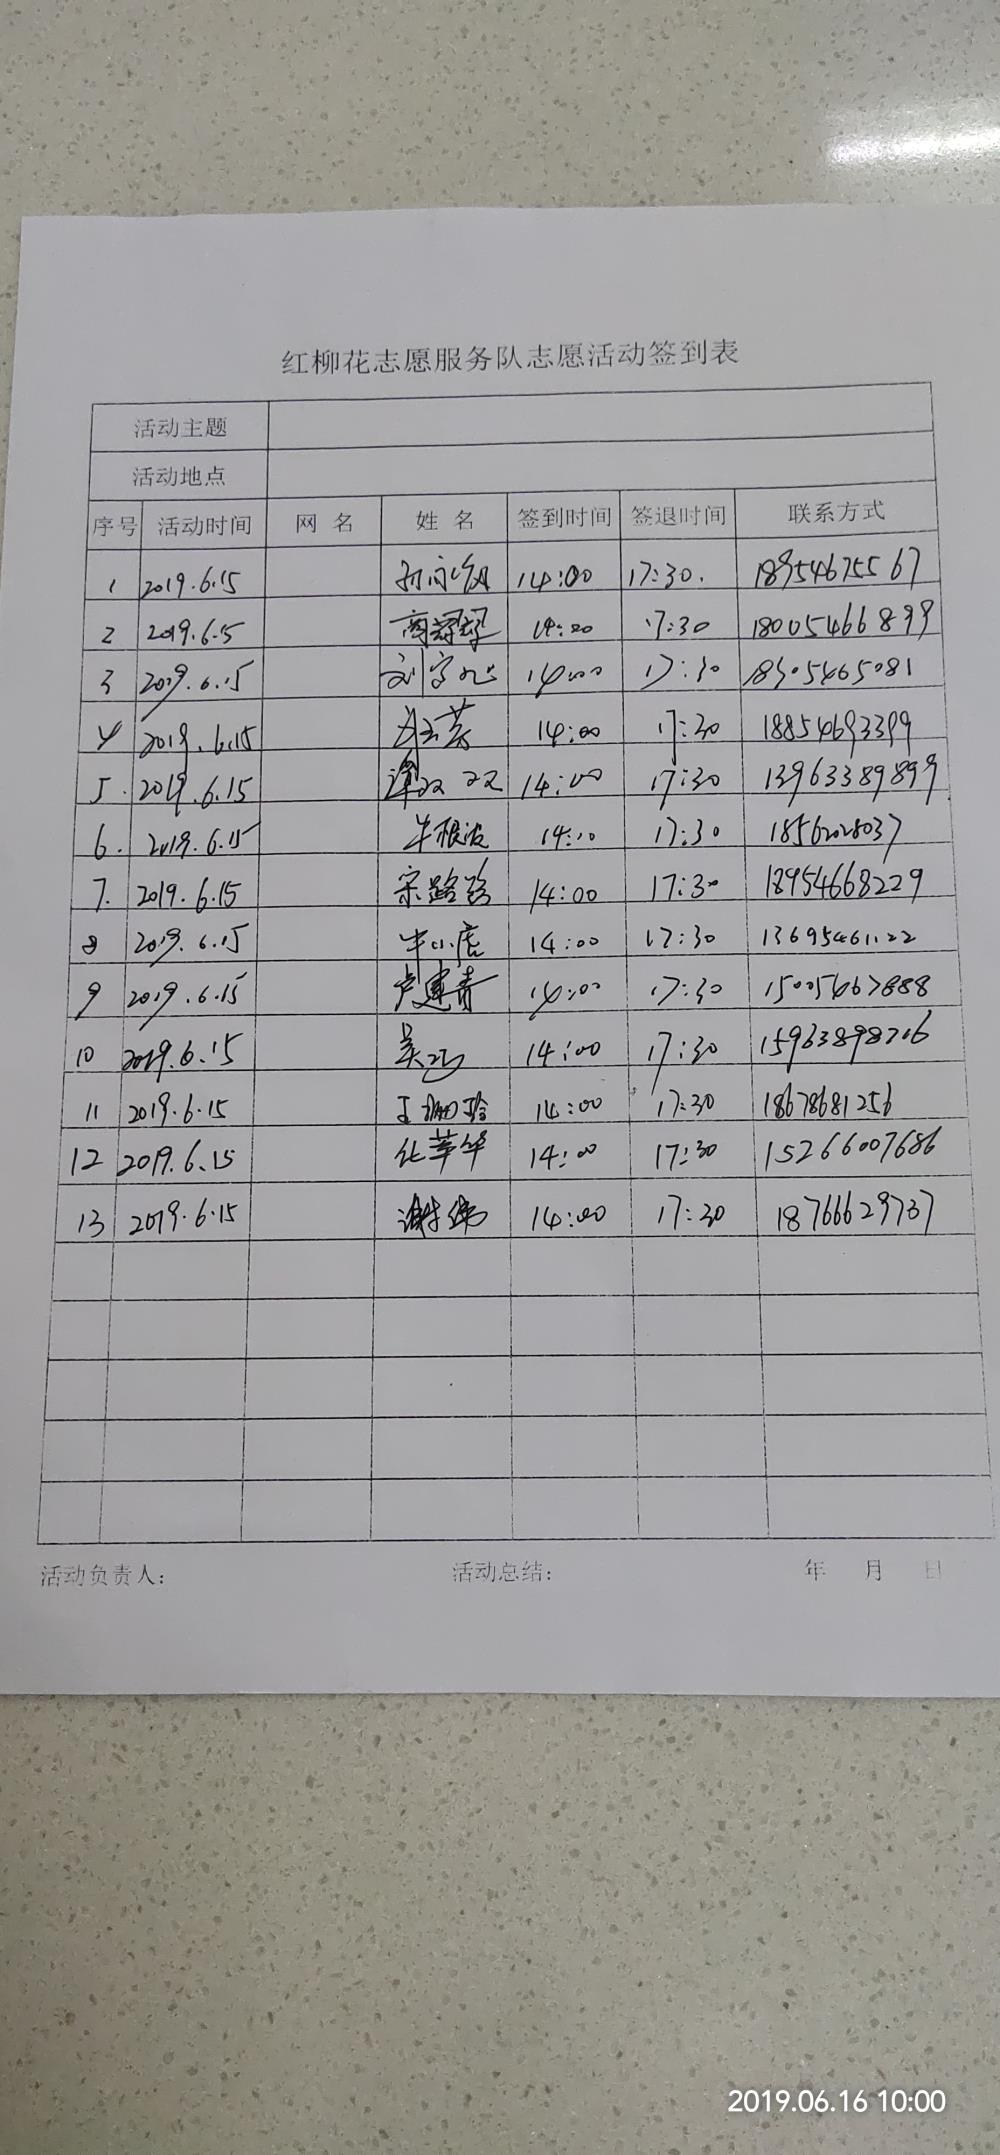 红柳花志愿服务队志愿活动签到表
活动主题
活动地点
序号 活动时间 网 名 姓 名 签到时间 签退时间 联系方式
1 2019.6.15 14:00 17:30. 18954675567
2 2019.6.5 商 14:00 17:30 18005466899
3 2019.6.15 刘 14:00 17:30 18305465081
4 2019.6.15 14:00 17:30 18854693399
5. 2019.6.15 谭双双 14:00 17:30 13963389899
6. 2019.6.15 牛根波 14:00 17:30 18562028037
7. 2019.6.15 宋路路 14:00 17:30 18954668229
8 2019.6.15 牛小店 14:00 17:30
9 2019.6.15 卢建青 14:00 17:30 15005467888
10 2019.6.15 吴 14:00 17:30 15963898706
11 2019.6.15 王 14:00 17:30 18678681256
12 2019.6.15 华 14:00 17:30 15266007686
13 2019.6.15 谢伟 14:00 17:30 18766629737
活动负责人: 活动总结: 年 月 日
2019.06.16 10:00